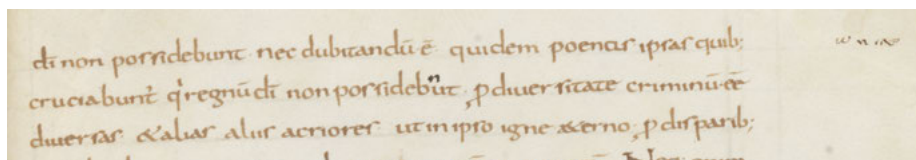 dī non possidebunt nec dubitandū ē quidem poenas ipsas quib;
cruciabunt̄ q̇ regnū dī non possidebūt ꝓ diversitate criminū eē
diversas & alias aliis acriores ut in ipso igne æterno ꝓ disparib;